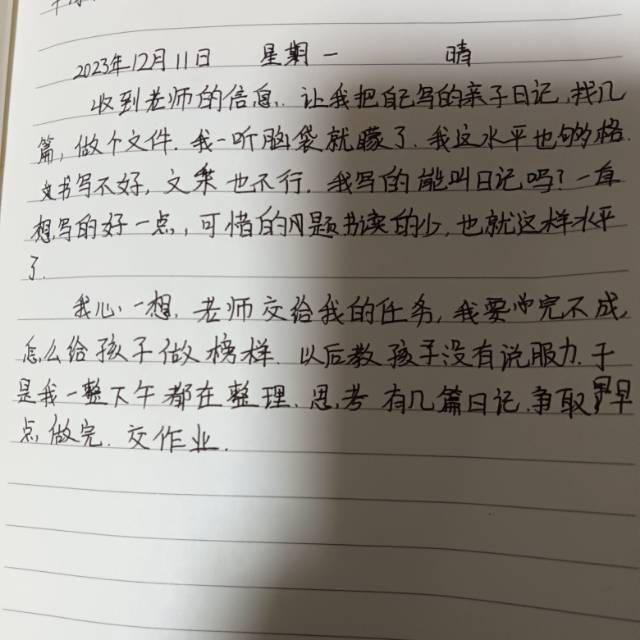 2023年12月11日 星期一 晴
收到老师的信息，让我把自己写的亲子日记，找几
篇，做个文件．我一听脑袋就朦了．我这水平也够格．
文书写不好，文采也不行．我写的能叫日记吗？一直
想写的好一点，可惜的问题书读的少，也就这样水平
了．
我心一想，老师交给我的任务，我要完不成，
怎么给孩子做榜样．以后教孩子没有说服力．于
是我一整下午都在整理．思考有几篇日记．争取早
点做完．交作业．